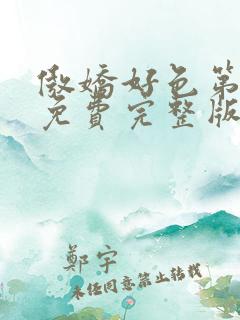 傲嬌好色第
免費完整版
鄭宇
未经同意禁止转载